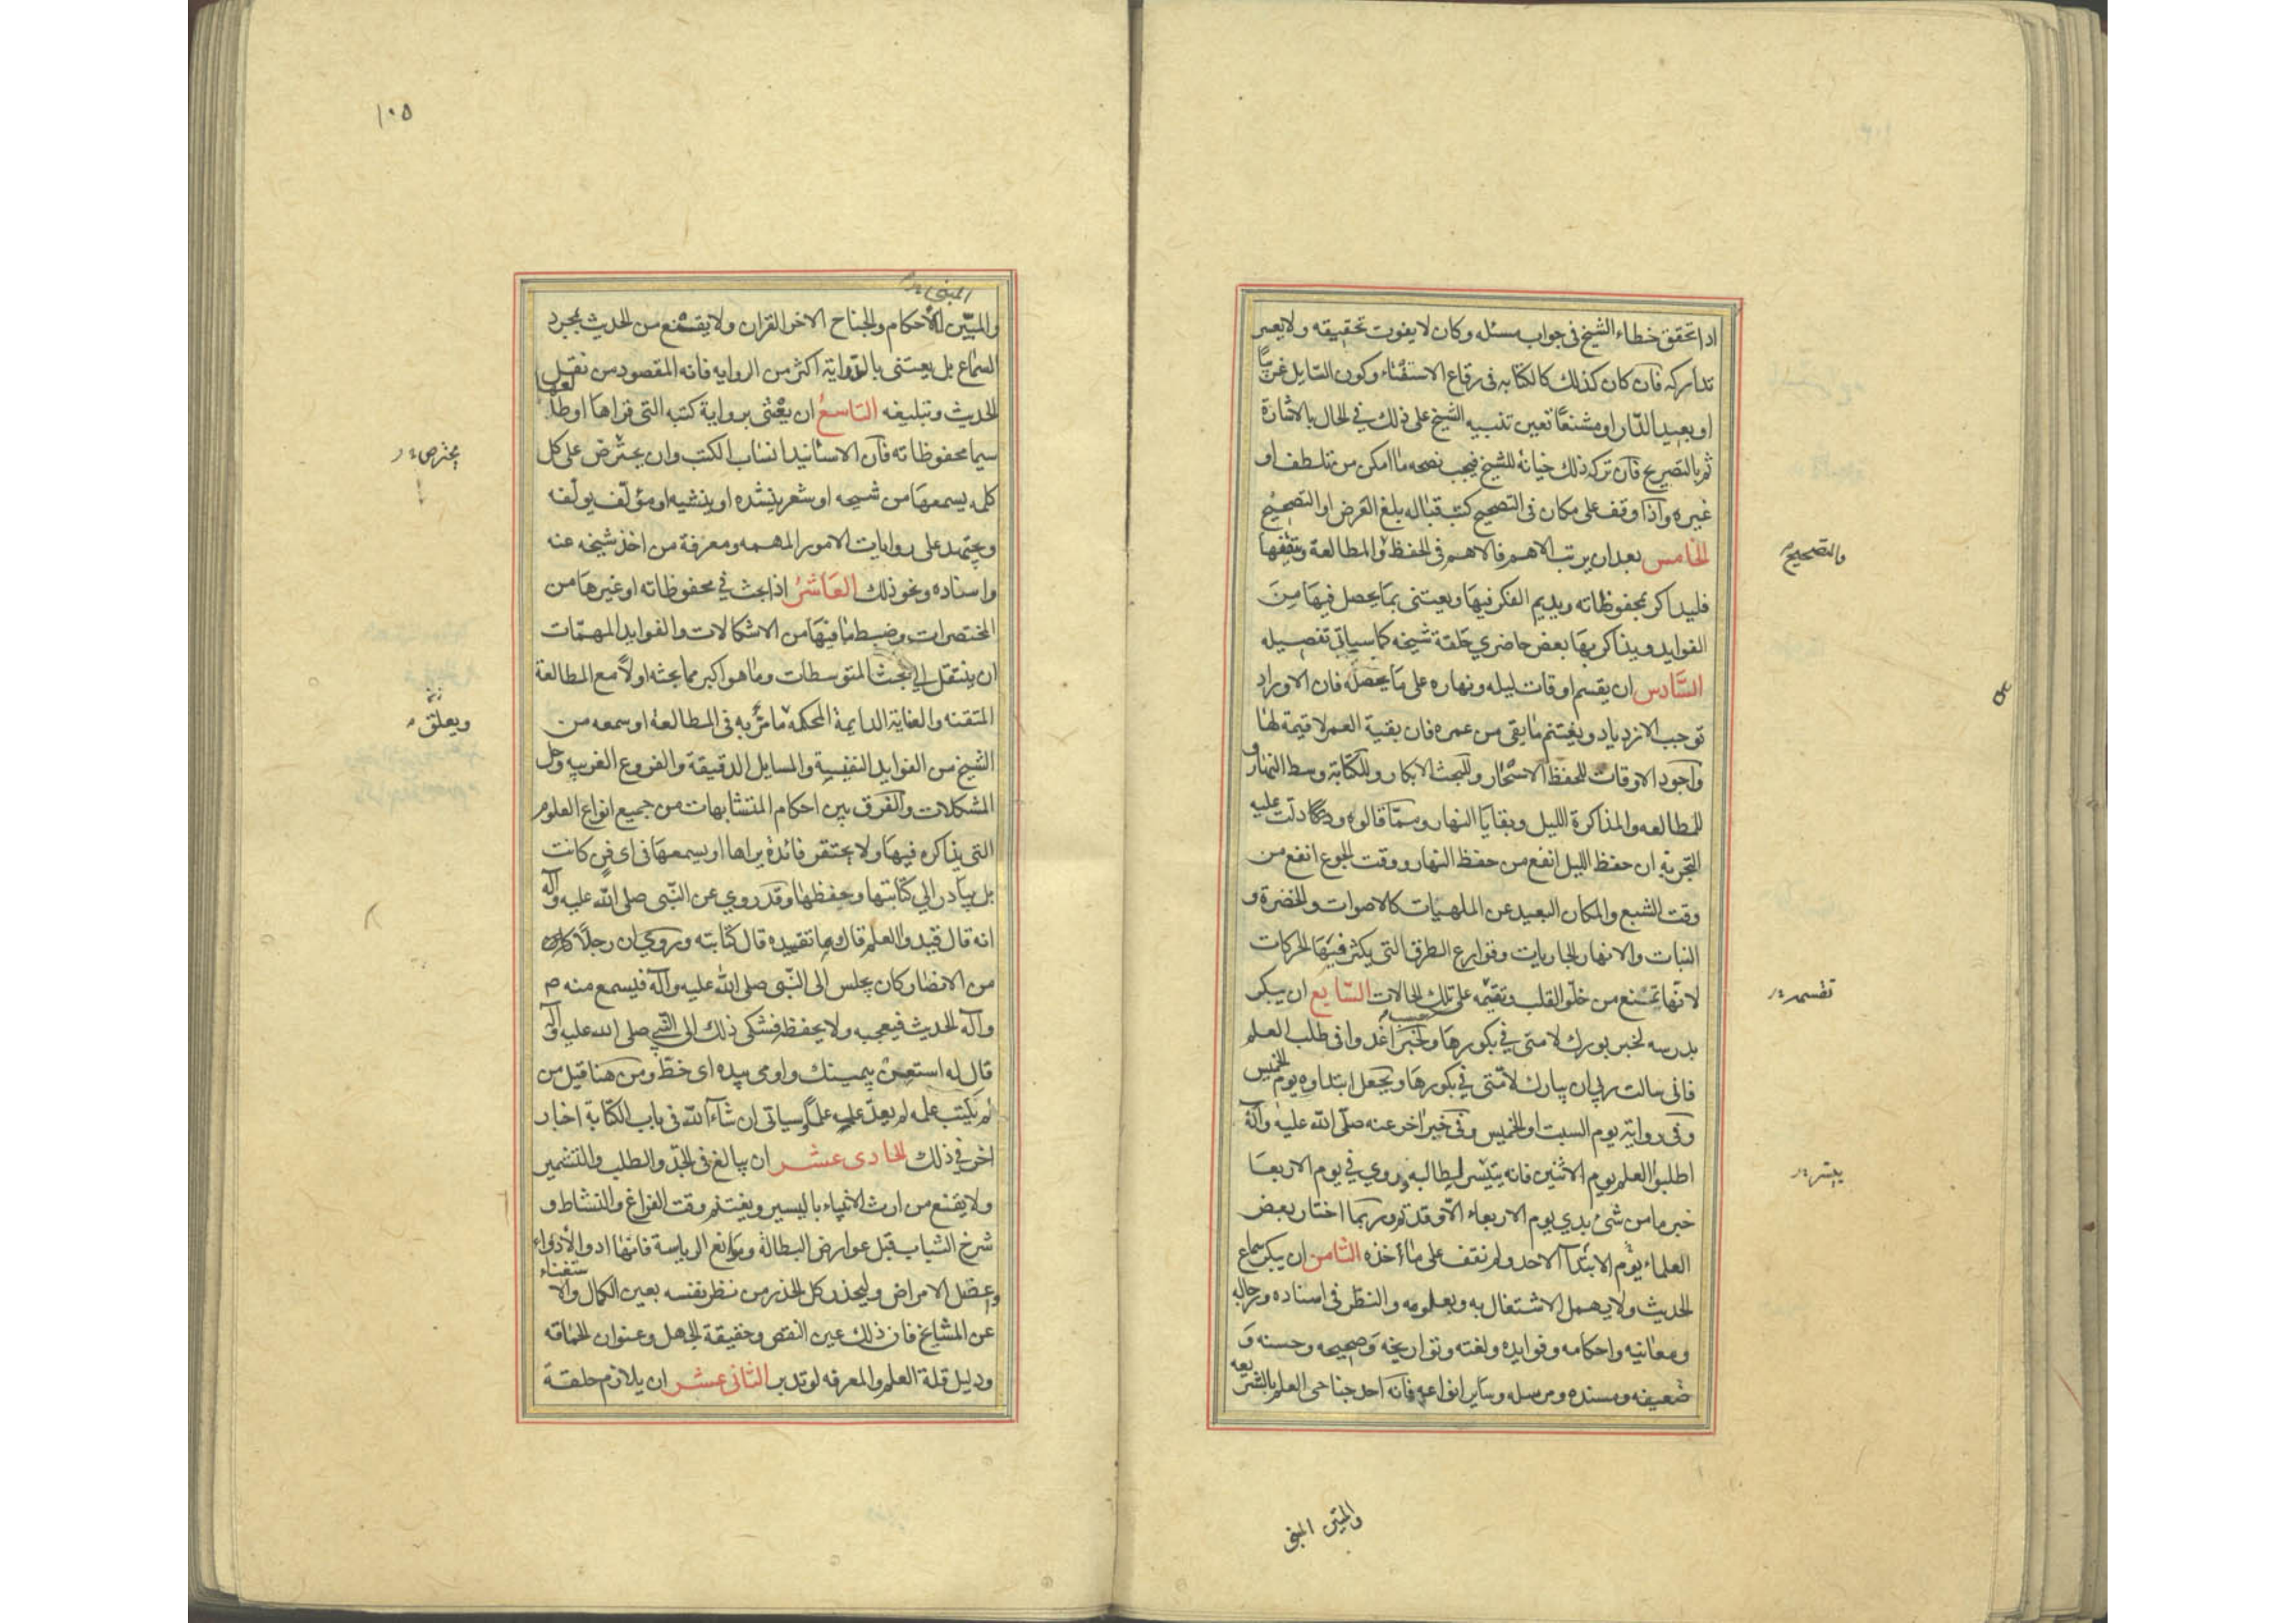 اذا تحقق خطاء الشيخ فى جواب مسئله وكان لا يفوت تحقيقه ولا يعسر
تداركه فان كان كذلك كالكتابه فى رقاع الاستفتاء وكون السايل غريبًا
او بعيد الدار او مشنعًا تعين تنبيه الشيخ على ذلك في الحال بالاشارة
ثم بالتصريح فان ترك ذلك خيانة للشيخ فيجب نصحه ما امكن من تلطف او
غيره واذا وقف على مكان فى التصحيح كتب قباله بلغ العرض او التصحيح
الخامس بعد ان يرتب الاهم فالاهم فى الحفظ والمطالعة ويتقنها
والتصحيح
فليذاكر بمحفوظاته ويديم الفكر فيها ويعتنى بما يحصل فيها من
الفوايد ويذاكر بها بعض حاضري حلقة شيخه كما سياتي تفصيله
السّادس ان يقسم اوقات ليله ونهاره على ما يحصله فان الاوراد
توجب الازدياد ويغتنم ما بقى من عمره فان بقية العمر لا قيمة لها
واجود الاوقات للحفظ الاسحار وللبحث الابكار وللكتابة وسط النهار و
للمطالعه والمذاكرة الليل وبقايا النهار ومما قالوه ودلت عليه
التجربة ان حفظ الليل انفع من حفظ النهار ووقت الجوع انفع من
وقت الشبع والمكان البعيد عن الملهيات كالاصوات والخضرة و
النبات والانهار الجاريات وقوارع الطرق التى يكثر فيها الحركات
لانها تمنع من خلو القلب وتقسمه على تلك الحالات السّابع ان يبكر
تقسمه
بدرسه لخبر بورك لامتى في بكورها ولخبر اغدوا فى طلب العلم
فانى سالت ربي ان يبارك لامتى في بكورها ويجعل ابتداوه يوم الخميس
وفى رواية يوم السبت او الخميس وفى خبر اخر عنه صلى الله عليه وآله
اطلبوا العلم يوم الاثنين فانه يتيسر لطالبه وروي في يوم الاربعا
ييسر
خبر ما من شئ بدي يوم الاربعاء الا وقد تم وربما اختار بعض
العلماء يوم الابتدآ الاحد ولم نقف على ماخذه الثامن ان يبكر سماع
الحديث ولا يهمل الاشتغال به وبعلومه والنظر فى اسناده ورجاله
ومعانيه واحكامه وفوايده ولغته وتواريخه وصحيحه وحسنه و
ضعيفه ومسنده ومرسله وساير انواعه فانه احد جناحى العلم بالشريعه
والمبين المبنى
١٠٥
والمبيّن للاحكام والجناح الاخر القران ولا يقنع من الحديث بمجرد
السماع بل يعتنى بالدراية اكثر من الروايه فانه المقصود من نقل
الحديث وتبليغه التاسع ان يعتنى برواية كتبه التى قراها او طالعها
سيما محفوظاته فان الاسانيد انساب الكتب وان يحترص على كل
يحترص
كلمه يسمعها من شيخه او شعر ينشده او ينشيه او مؤلف يولفه
ويجتهد على روايات الامور المهمه ومعرفة من اخذ شيخه عنه
واسناده ونحو ذلك العاشر اذا بحث في محفوظاته او غيرها من
المختصرات وضبط ما فيها من الاشكالات والفوايد المهمّات
ان ينتقل الى بحث المتوسطات وما هو اكبر مما بحثه اولاً مع المطالعة
المتقنه والعناية الدايمة المحكمه ما مر به فى المطالعة او سمعه من
ويعلق
الشيخ من الفوايد النفيسة والمسايل الدقيقة والفروع الغريبه وحل
المشكلات والفرق بين احكام المتشابهات من جميع انواع العلوم
التى يذاكره فيها ولا يحتقر فائدة يراها او يسمعها فى اى فن كانت
بل يبادر الي كتابتها وحفظها وقد روي عن النّبى صلى الله عليه وآله
انه قال قيدوا العلم قال وما تقييده قال كتابته وروي ان رجلاً كان
من الانصار كان يجلس الى النّبى صلى الله عليه وآله فيسمع منه م
وآله الحديث فيعجبه ولا يحفظه فشكى ذلك الى النبي صلى الله عليه وآله
قال له استعن بيمينك واومى بيده اى خط ومن هنا قيل من
لم يكتب علمه لم يعد علمه علمًا وسياتى ان شاء الله فى باب الكتابة اخبار
اخر في ذلك الحادى عشر ان يبالغ فى الجد والطلب والتشمير
ولا يقنع من ارث الانبياء باليسير ويغتنم وقت الفراغ والنشاط و
شرخ الشباب قبل عوارض البطالة وموانع الرياسة فانها ادو الأدواء
واعضل الامراض وليحذر كل الحذر من نظر نفسه بعين الكمال والاستغناء
عن المشايخ فان ذلك عين النقص وحقيقة الجهل وعنوان الحماقه
ودليل قلة العلم والمعرفه لو تدبر الثانى عشر ان يلازم حلقة